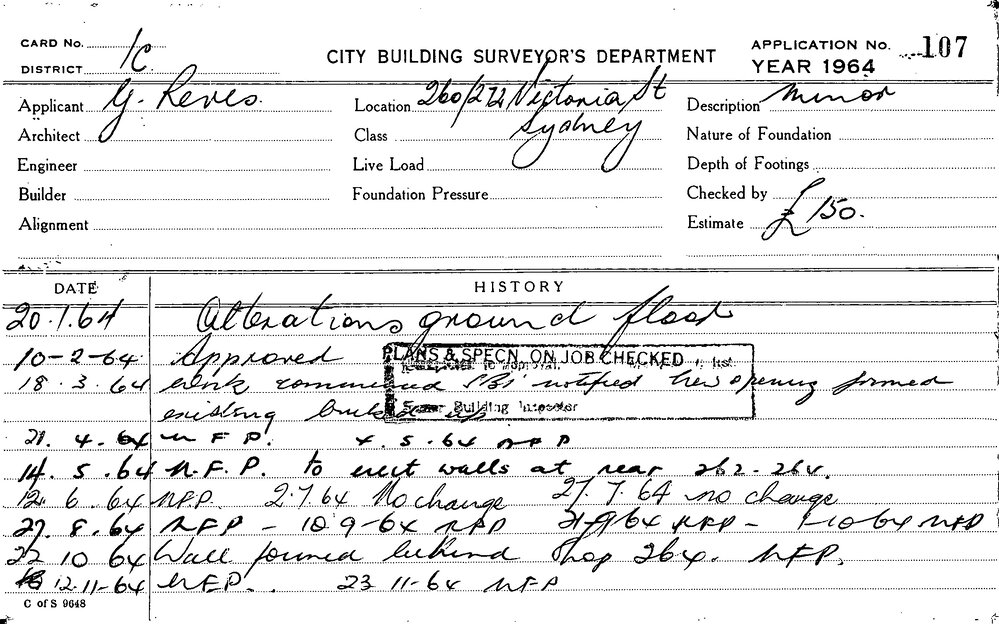 CARD No. 1C
DISTRICT
CITY BUILDING SURVEYOR'S DEPARTMENT
APPLICATION No. 107
YEAR 1964
Applicant G. Reves.
Location 260/272 Victoria St
Sydney
Description Minor
Architect
Class
Nature of Foundation
Engineer
Live Load
Depth of Footings
Builder
Foundation Pressure
Checked by
Alignment
Estimate £150.
DATE HISTORY
20.1.64 Alterations ground floor
10-2-64 Approved
PLANS & SPECN. ON JOB CHECKED
18.3.64 Work commenced notified new opening formed
existing
Building Inspector
21.4.64 N F P. 4.5.64 NFP
14.5.64 N.F.P. to erect walls at rear 262-264.
12 6 64 NFP. 2.7.64 No change 27.7.64 no change
27.8.64 NFP - 10 9-64 NFP 21-9-64 NFP - 1-10 64 NFP
22 10 64 Wall formed behind Shop 264. NFP.
12.11-64 NFP. 23 11-64 NFP
C of S 9648